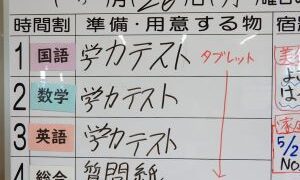 時間割 準備・用意する物
1 国語 学力テスト タブレット
2 数学 学力テスト
3 英語 学力テスト
4 総合 質問紙
5/2
No